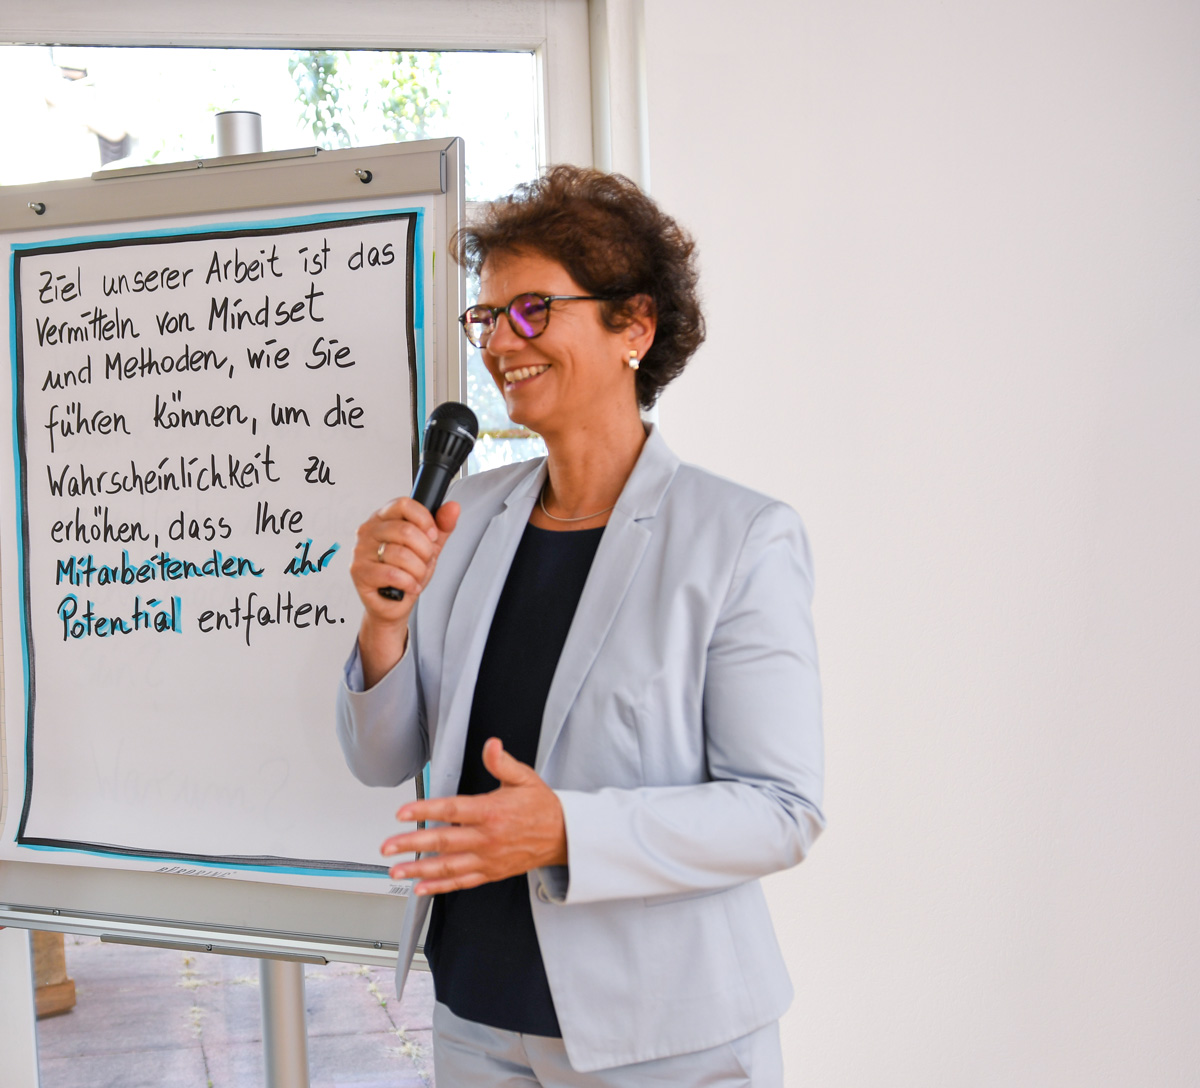 Ziel unserer Arbeit ist das
Vermitteln von Mindset
und Methoden, wie Sie
führen können, um die
Wahrscheinlichkeit zu
erhöhen, dass Ihre
Mitarbeitenden ihr
Potential entfalten.